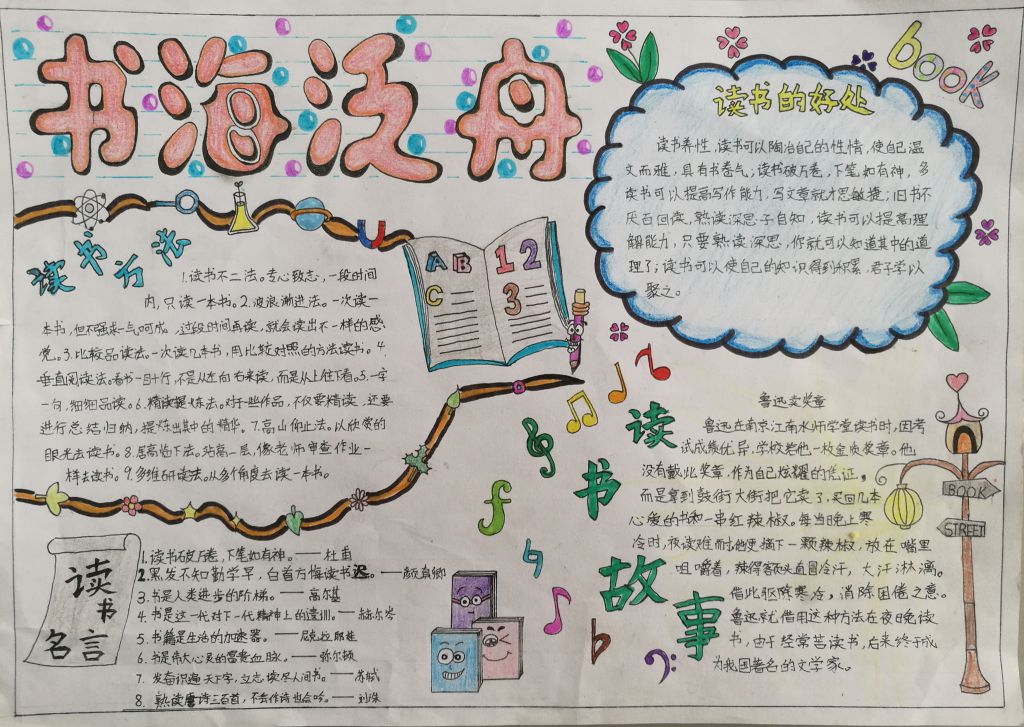 书海泛舟
BOOK
读书的好处
读书养性,读书可以陶冶自己的性情,使自己温
文而雅,具有书香气;读书破万卷,下笔如有神,多
读书可以提高写作能力,写文章就才思敏捷;旧书不
厌百回读,熟读深思子自知,读书可以提高理
解能力,只要熟读深思,你就可以知道其中的道
理了;读书可以使自己的知识得到积累,君子学以
聚之。
读书方法
1.读书不二法。专心致志,一段时间
内,只读一本书。2.波浪渐进法。一次读一
本书,但不强求一气呵成,过段时间再读,就会读出不一样的感
觉。3.比较品读法。一次读几本书,用比较对照的方法读书。4.
垂直阅读法。看书一目十行,不是从左向右来读,而是从上往下看。5.一字
一句,细细品读。6.精读提炼法。对于些作品,不仅要精读,还要
进行总结归纳,提炼出其中的精华。7.高山仰止法。以欣赏的
眼光去读书。8.居高临下法。站高一层,像老师审查作业一
样去读书。9.多维研读法。从多个角度去读一本书。
A B
C
1 2
3
读书名言
1.读书破万卷,下笔如有神。——杜甫
2.黑发不知勤学早,白首方悔读书迟。——颜真卿
3.书是人类进步的阶梯。——高尔基
4.书是这一代对下一代精神上的遗训。——赫尔岑
5.书籍是生活的加速器。——尼克拉耶娃
6.书是伟大心灵的富贵血脉。——弥尔顿
7.发奋识遍天下字,立志读尽人间书。——苏轼
8.熟读唐诗三百首,不会作诗也会吟。——孙洙
读书故事
鲁迅卖奖章
鲁迅在南京江南水师学堂读书时,因考
试成绩优异,学校奖他一枚金质奖章。他
没有戴此奖章,作为自己炫耀的凭证,
而是拿到鼓街大街把它卖了,买回几本
心爱的书和一串红辣椒。每当晚上寒
冷时,夜读难耐,他便摘下一颗辣椒,放在嘴里
咀嚼着,辣得额头直冒冷汗,大汗淋漓。
借此驱除寒冷,消除困倦之意。
鲁迅就借用这种方法在夜晚读
书,由于经常苦读书,后来终于成
为我国著名的文学家。
BOOK
STREET